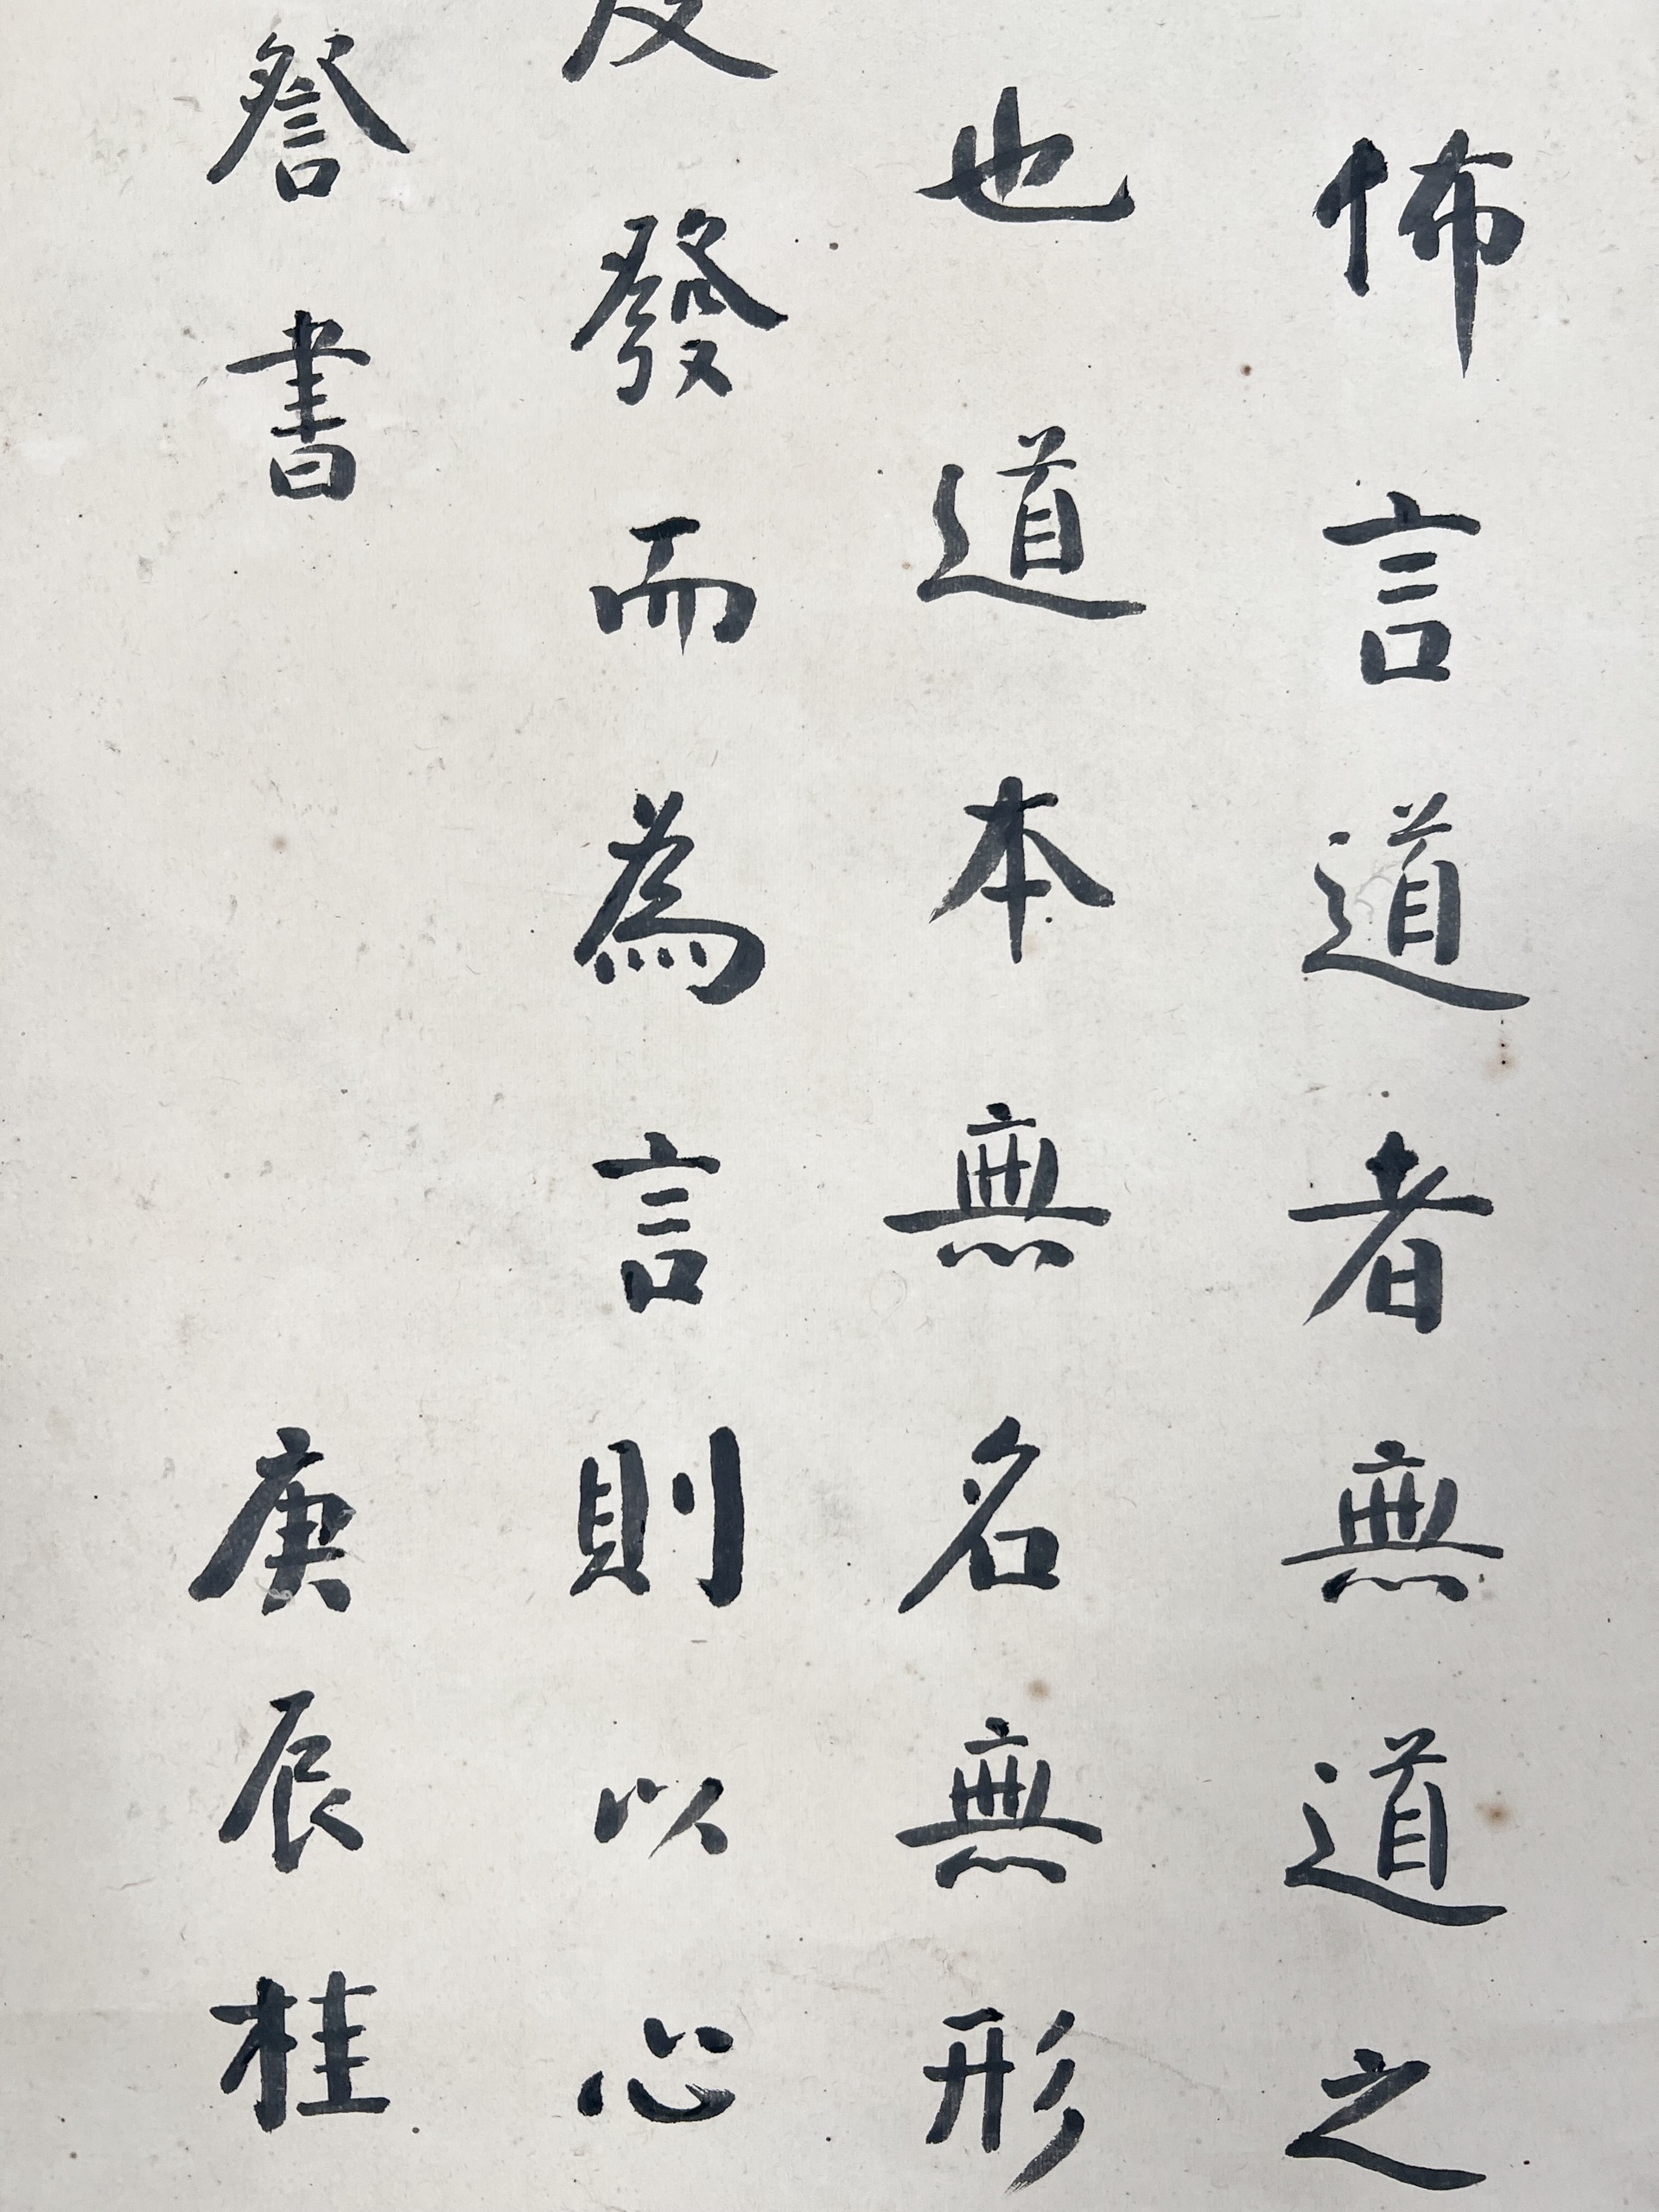 佈言道者無道之
也道本無名無形
發而為言則以心
詧書 庚辰桂